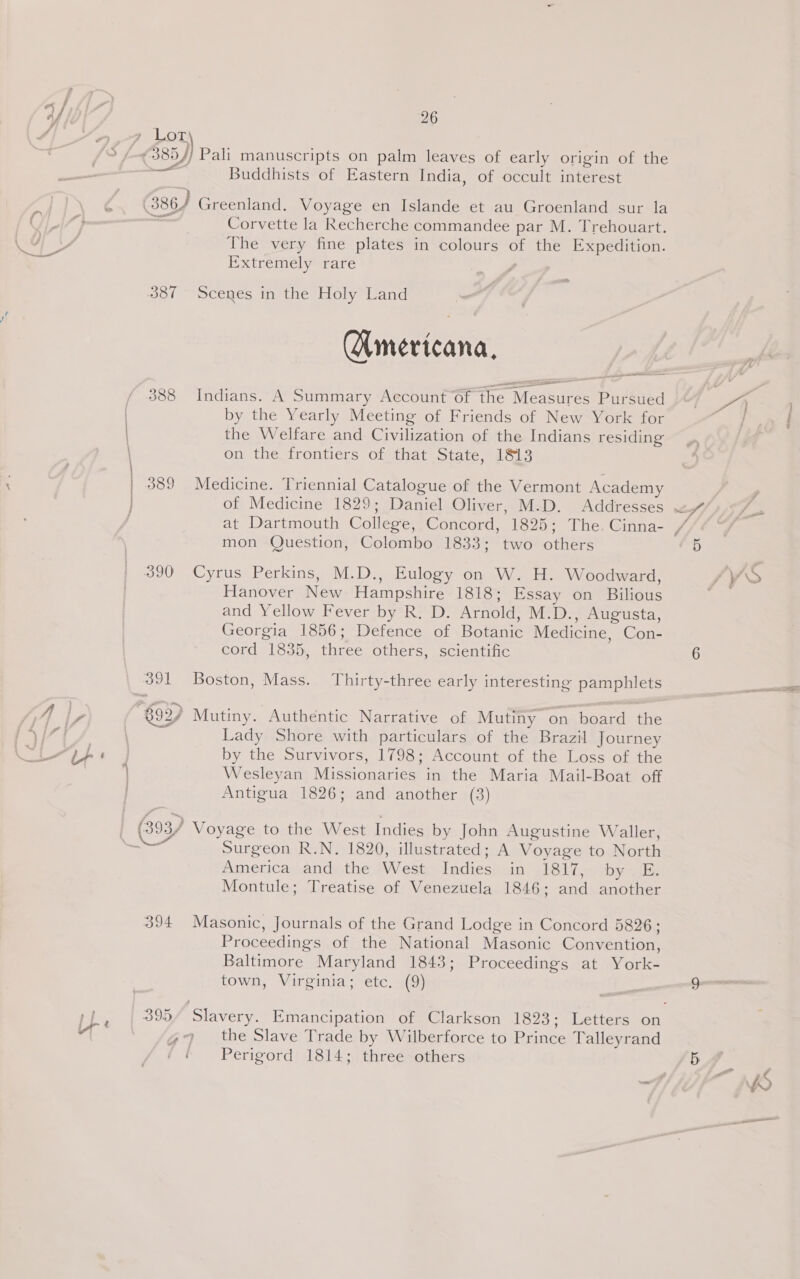 26
Lot
385 Pali manuscripts on palm leaves of early origin of the
Buddhists of Eastern India, of occult interest
386 Greenland. Voyage en Islande et au Groenland sur la
Corvette la Recherche commandee par M. Trehouart.
The very fine plates in colours of the Expedition.
Extremely rare
387 Scenes in the Holy Land
Americana.
388 Indians. A Summary Account of the Measures Pursued
by the Yearly Meeting of Friends of New York for
the Welfare and Civilization of the Indians residing
on the frontiers of that State, 1813
389 Medicine. Triennial Catalogue of the Vermont Academy
of Medicine 1829; Daniel Oliver, M.D. Addresses
at Dartmouth College, Concord, 1825; The Cinna-
mon Question, Colombo 1833; two others 5
390 Cyrus Perkins, M.D., Eulogy on W. H. Woodward,
Hanover New Hampshire 1818; Essay on Bilious
and Yellow Fever by R. D. Arnold, M.D., Augusta,
Georgia 1856; Defence of Botanic Medicine, Con-
cord 1835, three others, scientific 6
391 Boston, Mass. Thirty-three early interesting pamphlets
692 Mutiny. Authentic Narrative of Mutiny on board the
Lady Shore with particulars of the Brazil Journey
by the Survivors, 1798; Account of the Loss of the
Wesleyan Missionaries in the Maria Mail-Boat off
Antigua 1826; and another (3)
393 Voyage to the West Indies by John Augustine Waller,
Surgeon R.N. 1820, illustrated; A Voyage to North
America and the West Indies in 1817, by E.
Montule; Treatise of Venezuela 1846; and another
394 Masonic, Journals of the Grand Lodge in Concord 5826;
Proceedings of the National Masonic Convention,
Baltimore Maryland 1843; Proceedings at York-
town, Virginia; etc. (9) 9
395 Slavery. Emancipation of Clarkson 1823; Letters on
the Slave Trade by Wilberforce to Prince Talleyrand
Perigord 1814; three others 5